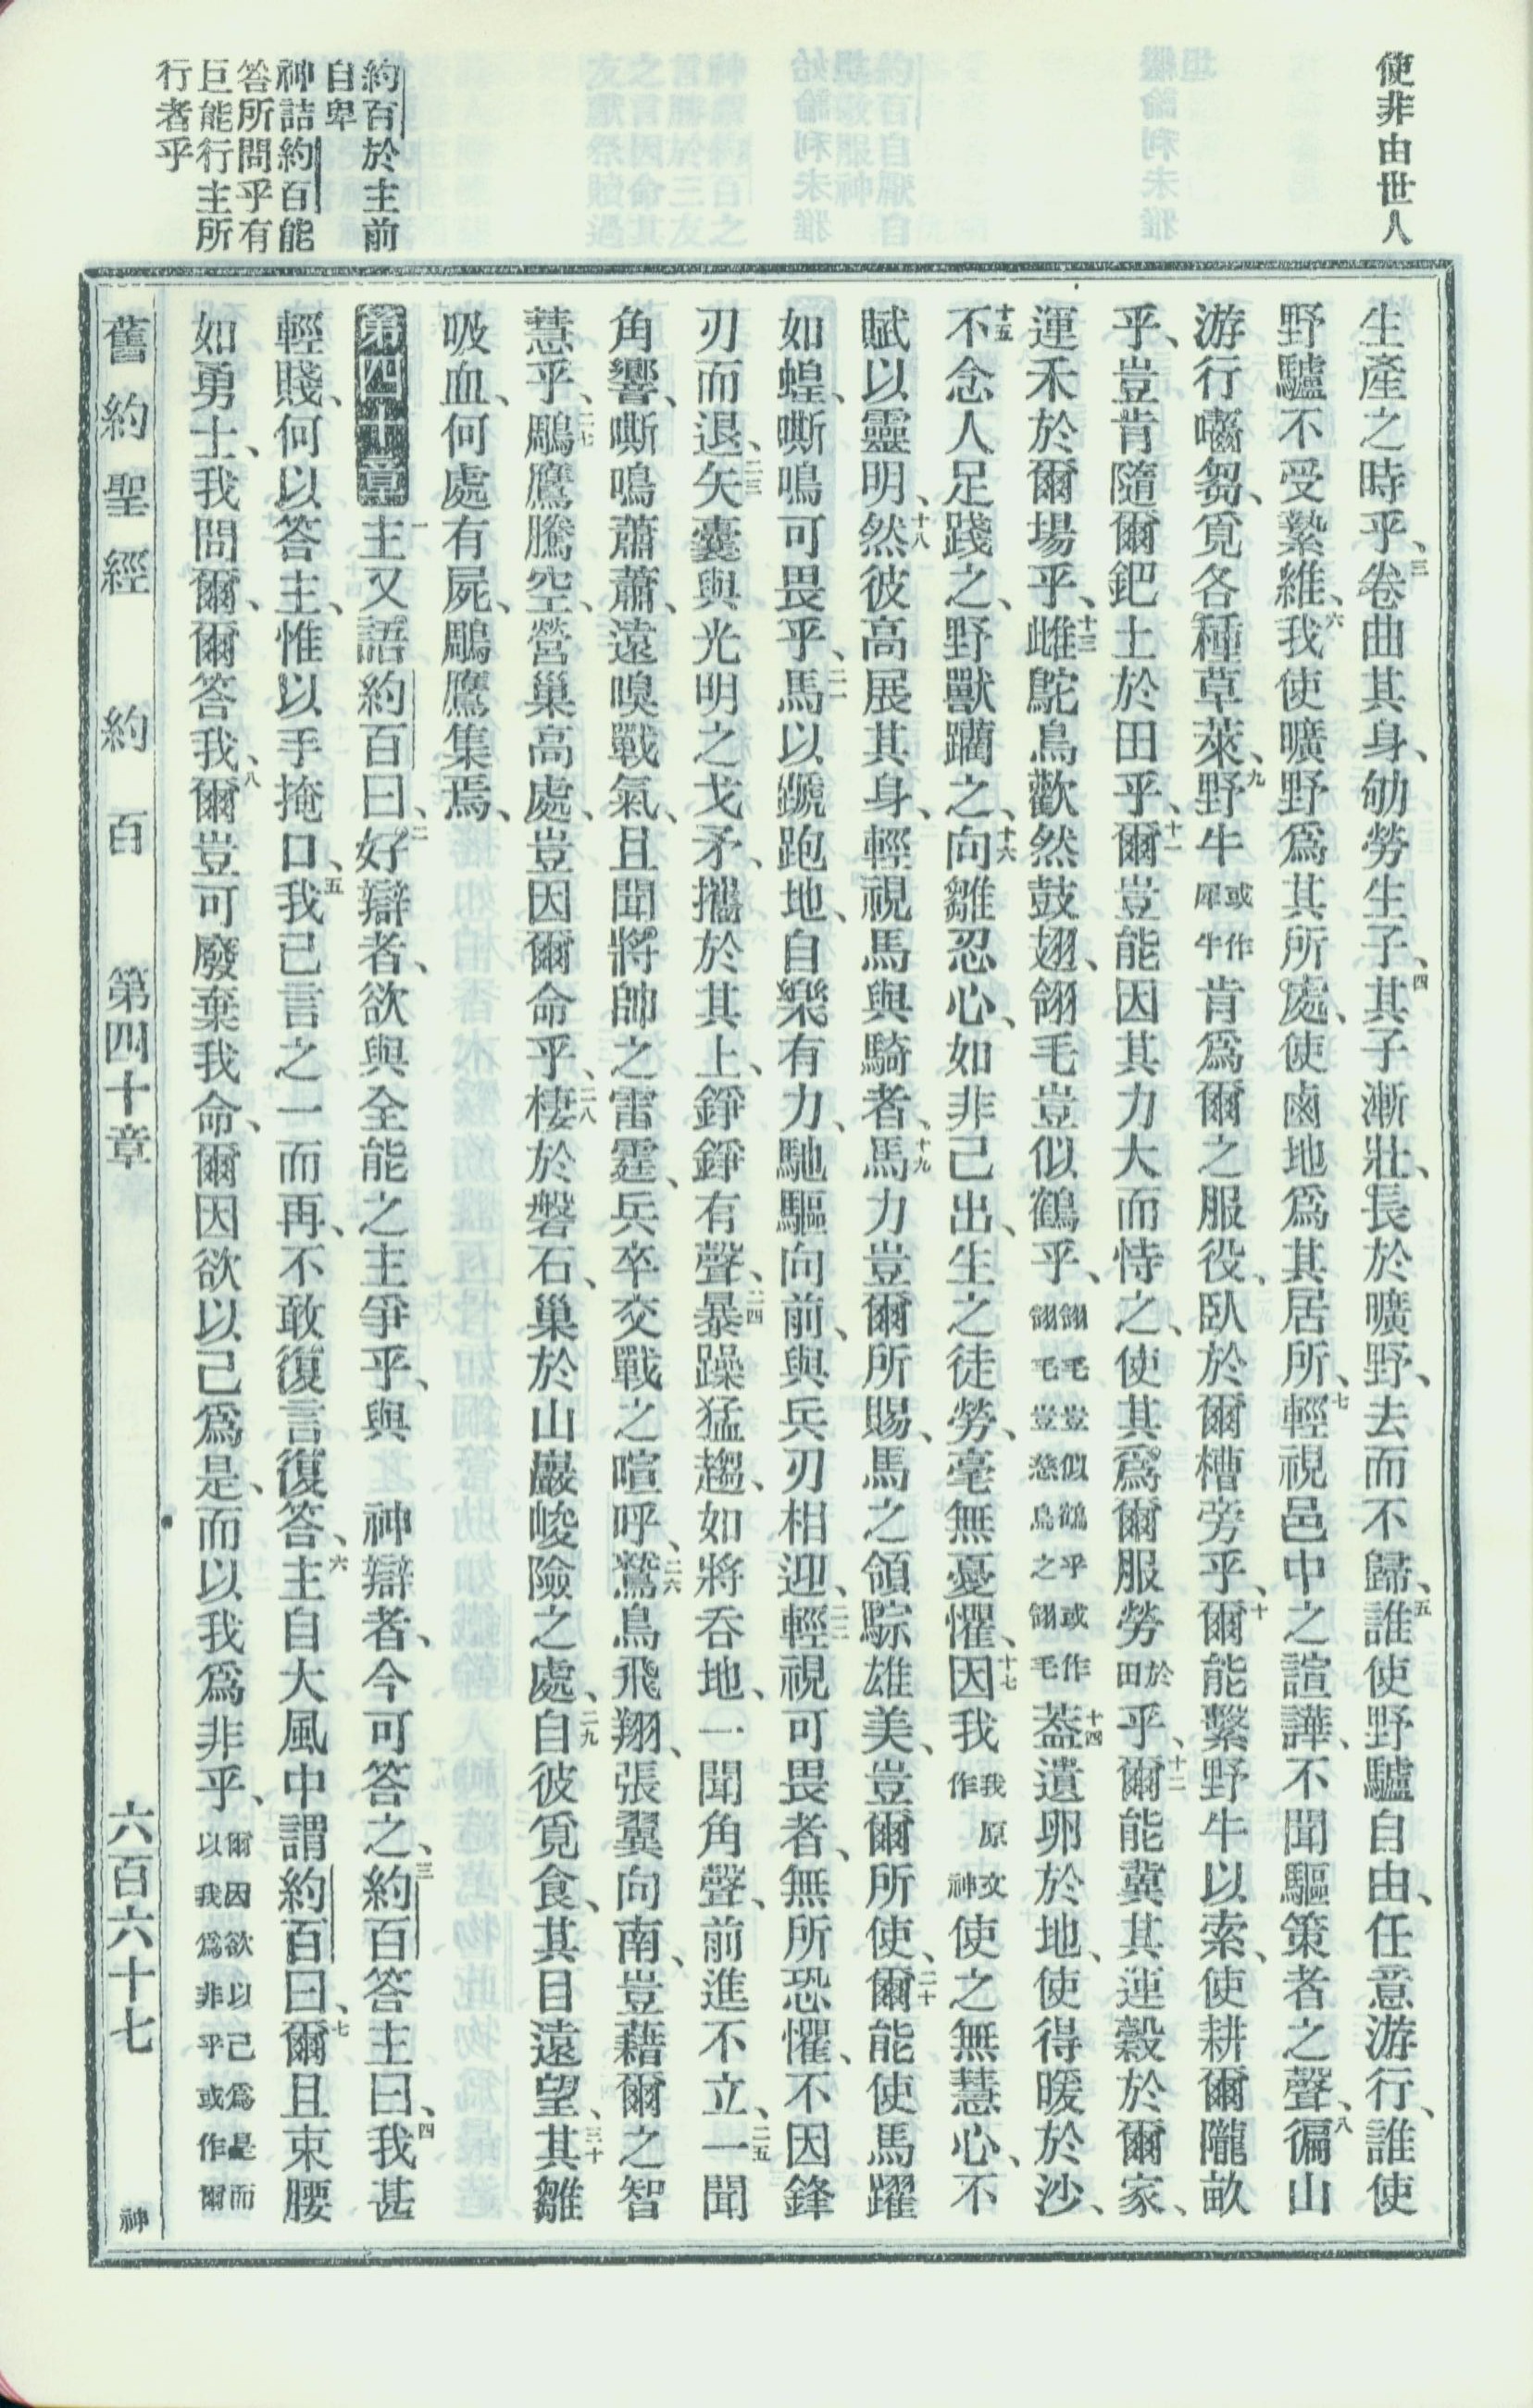 使非由世人
約百於主前
自卑
神詰約百能
答所問乎有
巨能行主所
行者乎
生產之時乎、三卷曲其身、劬勞生子、四其子漸壯、長於曠野、去而不歸、五誰使野驢自由、任意游行、誰使
野驢不受縶維、六我使曠野爲其所處、使鹵地爲其居所、七輕視邑中之諠譁、不聞驅策者之聲、八徧山
游行嚙芻、覓各種草萊、九野牛或作犀牛肯爲爾之服役、臥於爾槽旁乎、十爾能繫野牛以索、使耕爾隴畝
乎、豈肯隨爾鈀土於田乎、十一爾豈能因其力大而恃之、使其爲爾服勞於田乎、十二爾能冀其運穀於爾家、
運禾於爾場乎、十三雌鴕鳥歡然鼓翅、翎毛豈似鶴乎、翎毛豈似鶴乎或作翎毛豈慈鳥之翎毛十四蓋遺卵於地、使得暖於沙、
十五不念人足踐之、野獸躪之、十六向雛忍心、如非己出、生之徒勞、毫無憂懼、十七因我我原文作神使之無慧心、不
賦以靈明、十八然彼高展其身、輕視馬與騎者、十九馬力豈爾所賜、馬之領騌雄美、豈爾所使、二十爾能使馬躍
如蝗、嘶鳴可畏乎、二一馬以蹏跑地、自樂有力、馳驅向前、與兵刃相迎、二二輕視可畏者、無所恐懼、不因鋒
刃而退、二三矢囊與光明之戈矛、攜於其上、錚錚有聲、二四暴躁猛趨、如將吞地、一聞角聲、前進不立、二五一聞
角響、嘶鳴蕭蕭、遠嗅戰氣、且聞將帥之雷霆、兵卒交戰之喧呼、二六鷙鳥飛翔、張翼向南、豈藉爾之智
慧乎、二七鵰鷹騰空、營巢高處、豈因爾命乎、二八棲於磐石、巢於山巖峻險之處、二九自彼覓食、其目遠望、三十其雛
吸血、何處有屍、鵰鷹集焉、
第四十章一主又語約百曰、二好辯者、欲與全能之主爭乎、與　神辯者、今可答之、三約百答主曰、四我甚
輕賤、何以答主、惟以手掩口、五我已言之一而再、不敢復言復答、六主自大風中謂約百曰、七爾且束腰
如勇士、我問爾、爾答我、八爾豈可廢棄我命、爾因欲以己爲是、而以我爲非乎、爾因欲以己爲是而以我爲非乎或作爾
舊約聖經　約百　第四十章　六百六十七　神